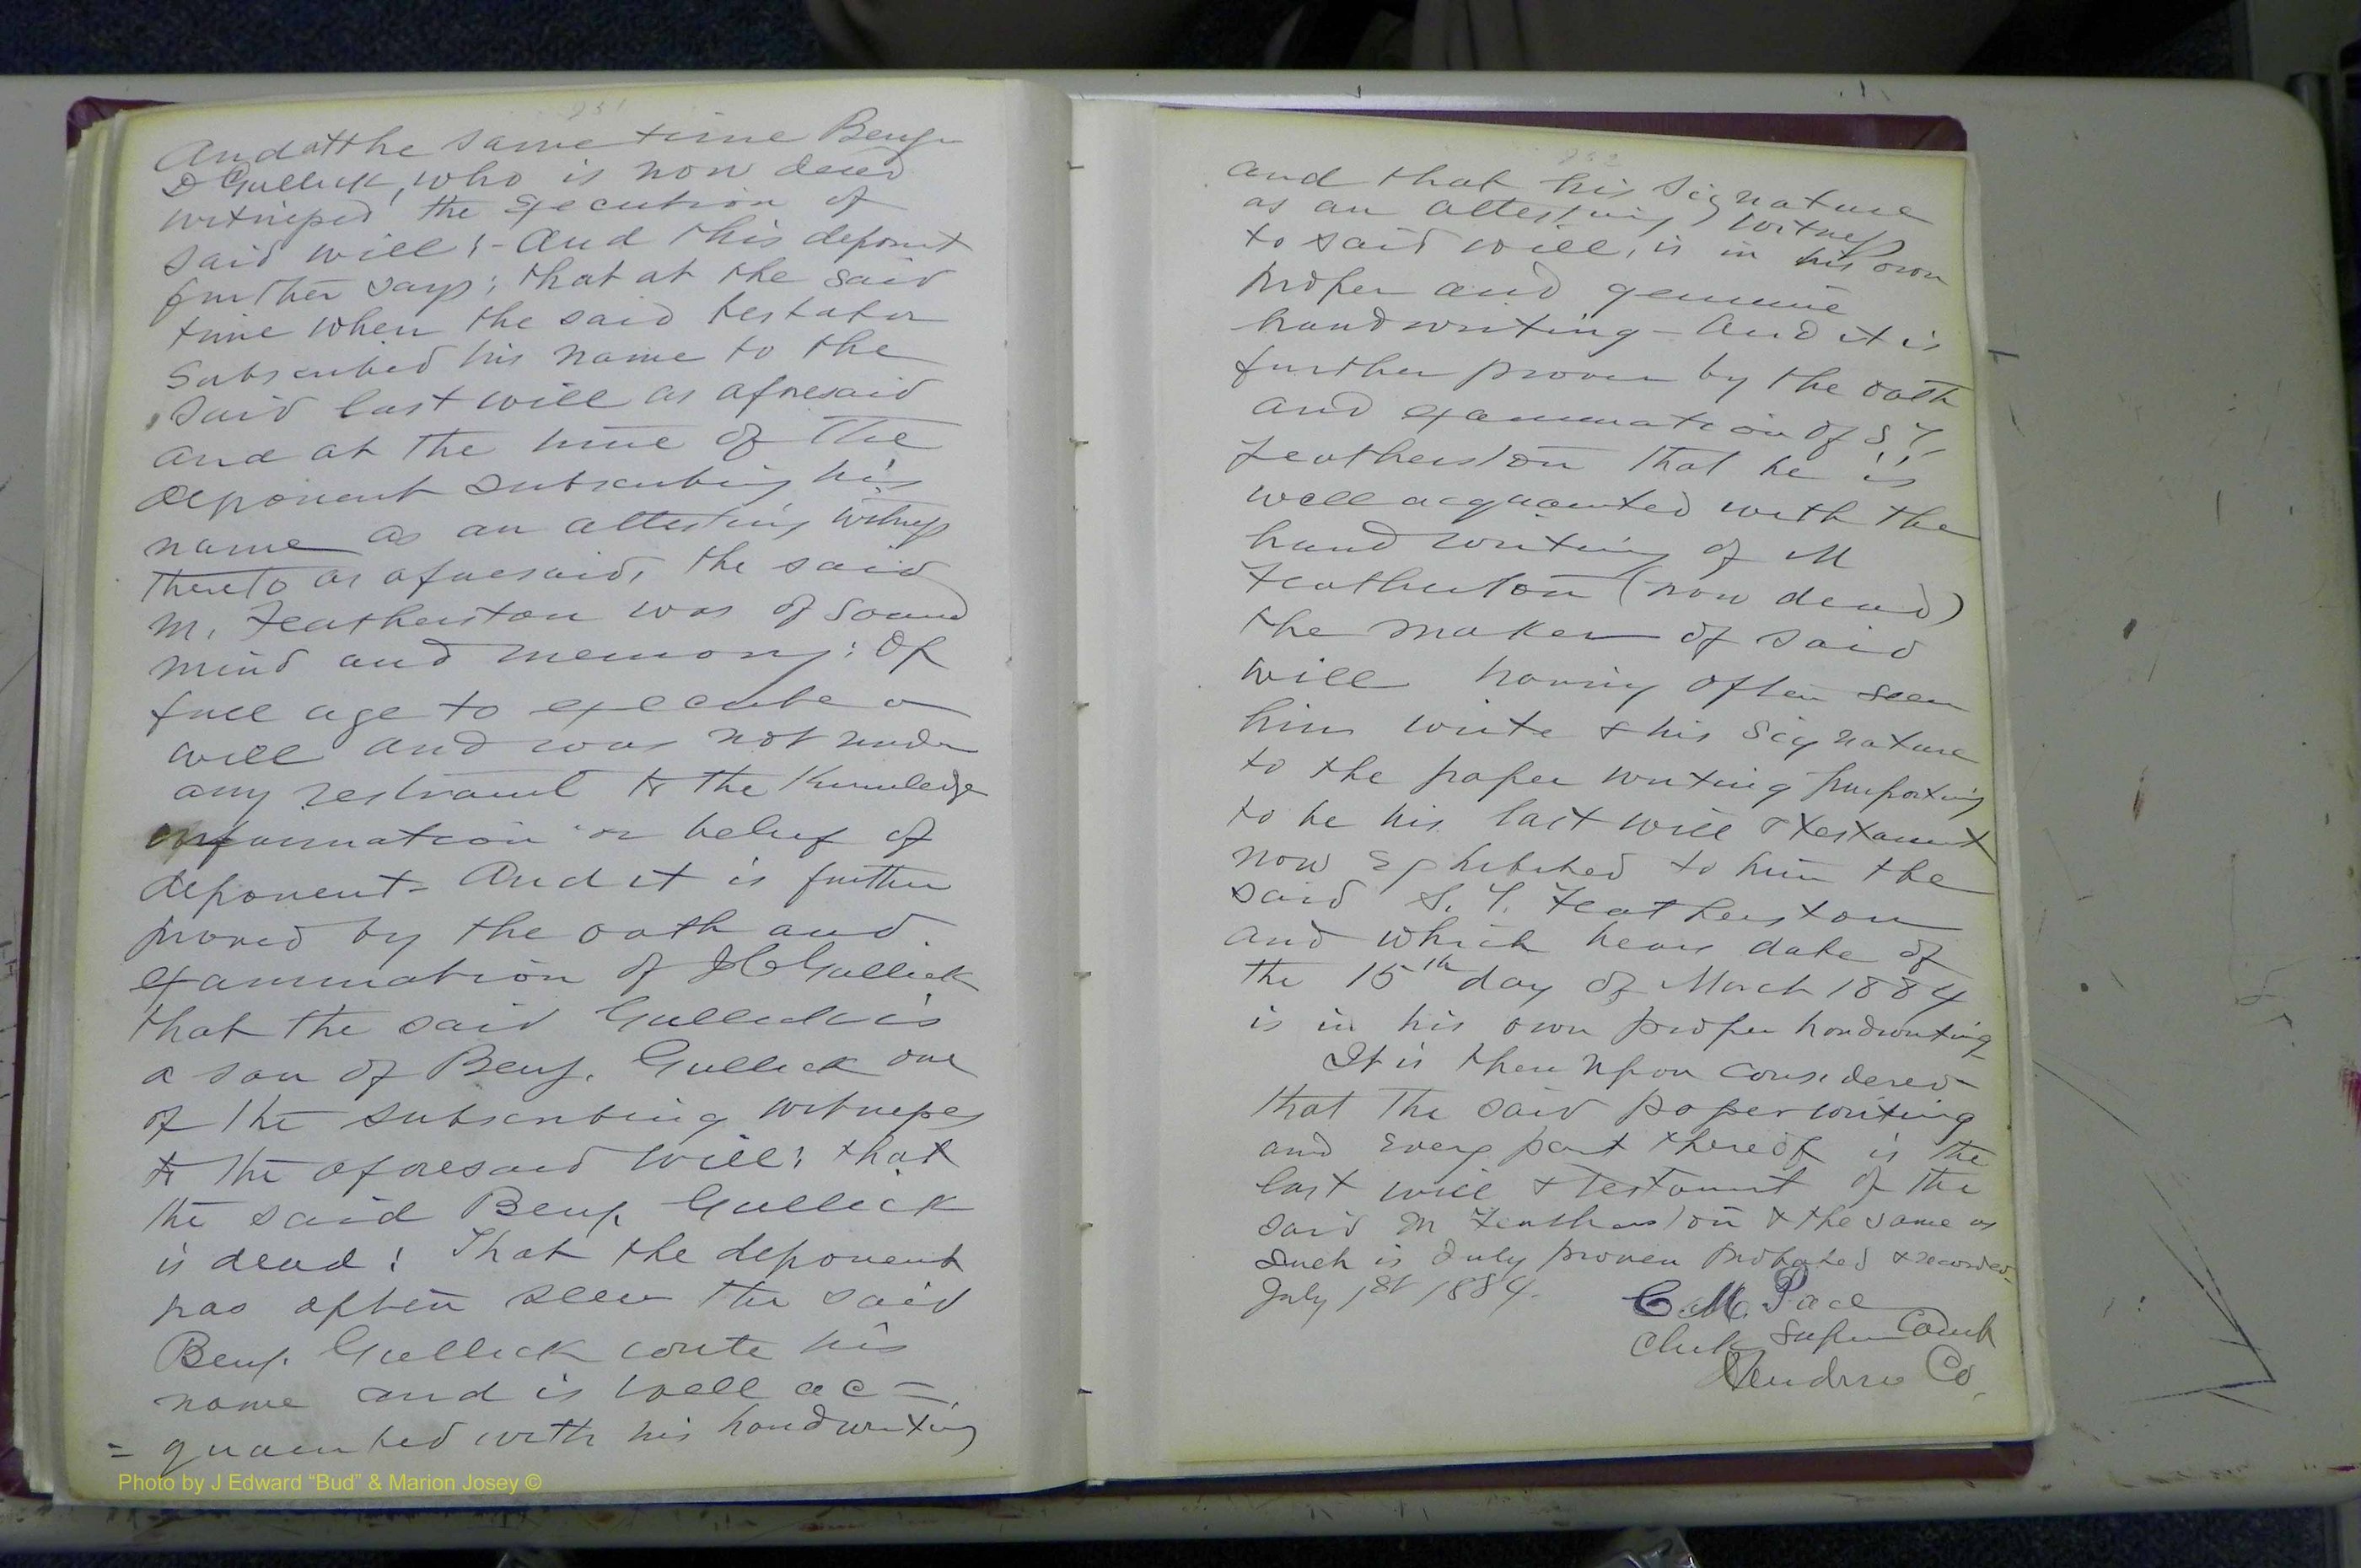 251
And at the same time Benj.
D Gullick, who is now dead
witnessed the execution of
said will; - And this deponent
further says; that at the said
time when the said testator
Subscribed his name to the
said last will as aforesaid
and at the time of the
deponent subscribing his
name as an attesting witness
thereto as aforesaid, the said
M. Featherston was of sound
mind and memory; of
full age to execute a
will and was not under
any restraint to the Knowledge
information or belief of
deponent - And it is further
proved by the oath and
examination of J C Gullick
that the said Gullick is
a son of Benj. Gullick one
of the subscribing witnesses
to the aforesaid will; that
the said Benj. Gullick
is dead; That the deponent
has often seen the said
Benj. Gullick write his
name and is well ac=
= quainted with his handwriting
Photo by J Edward “Bud” & Marion Josey ©
252
and that his signature
as an attesting witness
to said will, is in his own
proper and genuine
handwriting - And it is
further proven by the oath
and examination of S Y
Featherston that he is
well acquainted with the
hand writing of M
Featherston (now dead)
the maker of said
will having often seen
him write & his signature
to the paper writing purporting
to be his last will & testament
now Exhibited to him the
said S. Y. Featherston
and which bears date of
the 15th day of March 1884
is in his own proper handwriting
It is thereupon considered
that the said paper writing
and every part thereof is the
last will & testament of the
said M Featherston & the same as
such is duly proven probated & recorded
July 1st 1884.
C. M. Pace
Clerk Super Court
Henderson Co.